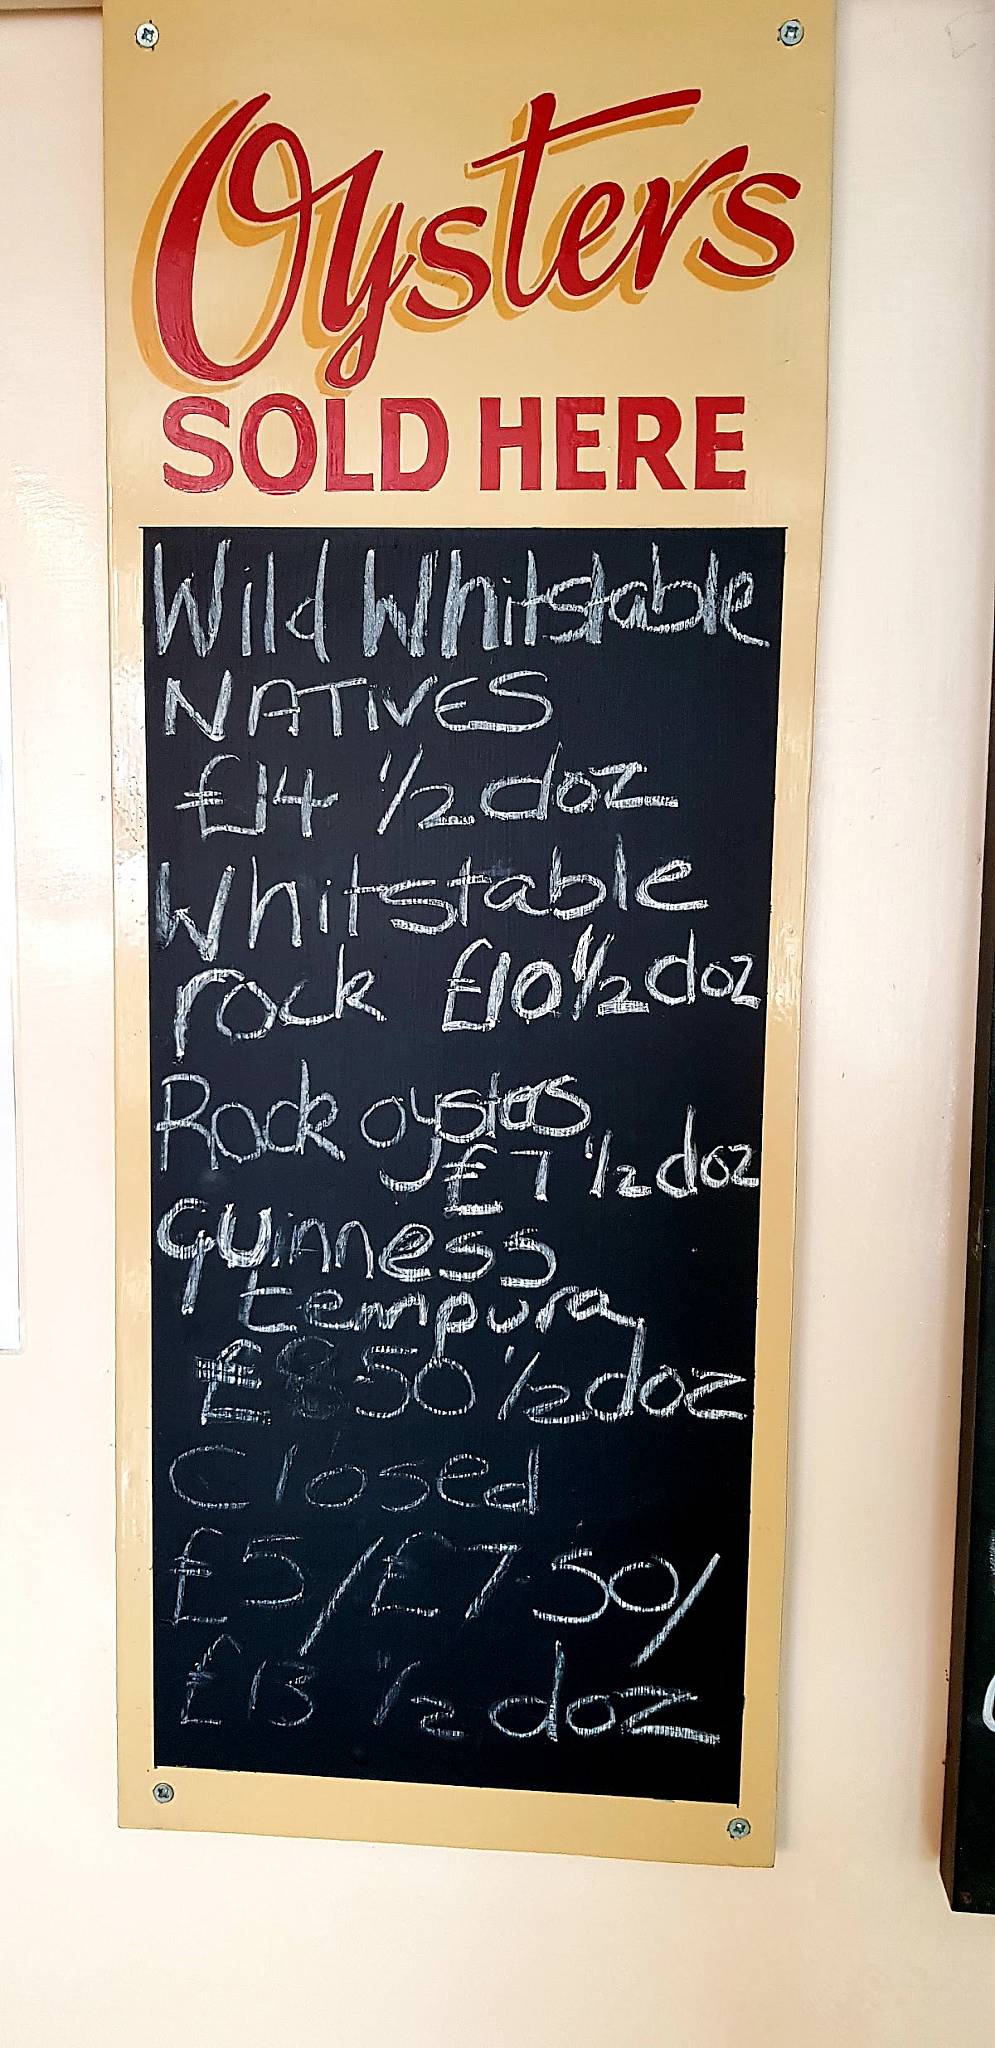 Oysters
SOLD HERE
Wild Whitstable
NATIVES
£14 1/2 doz
Whitstable
rock £10 1/2 doz
Rock oystas
£7 1/2 doz
Guinness
tempura
£8 50 1/2 doz
Closed
£5/£7.50/
£13 1/2 doz